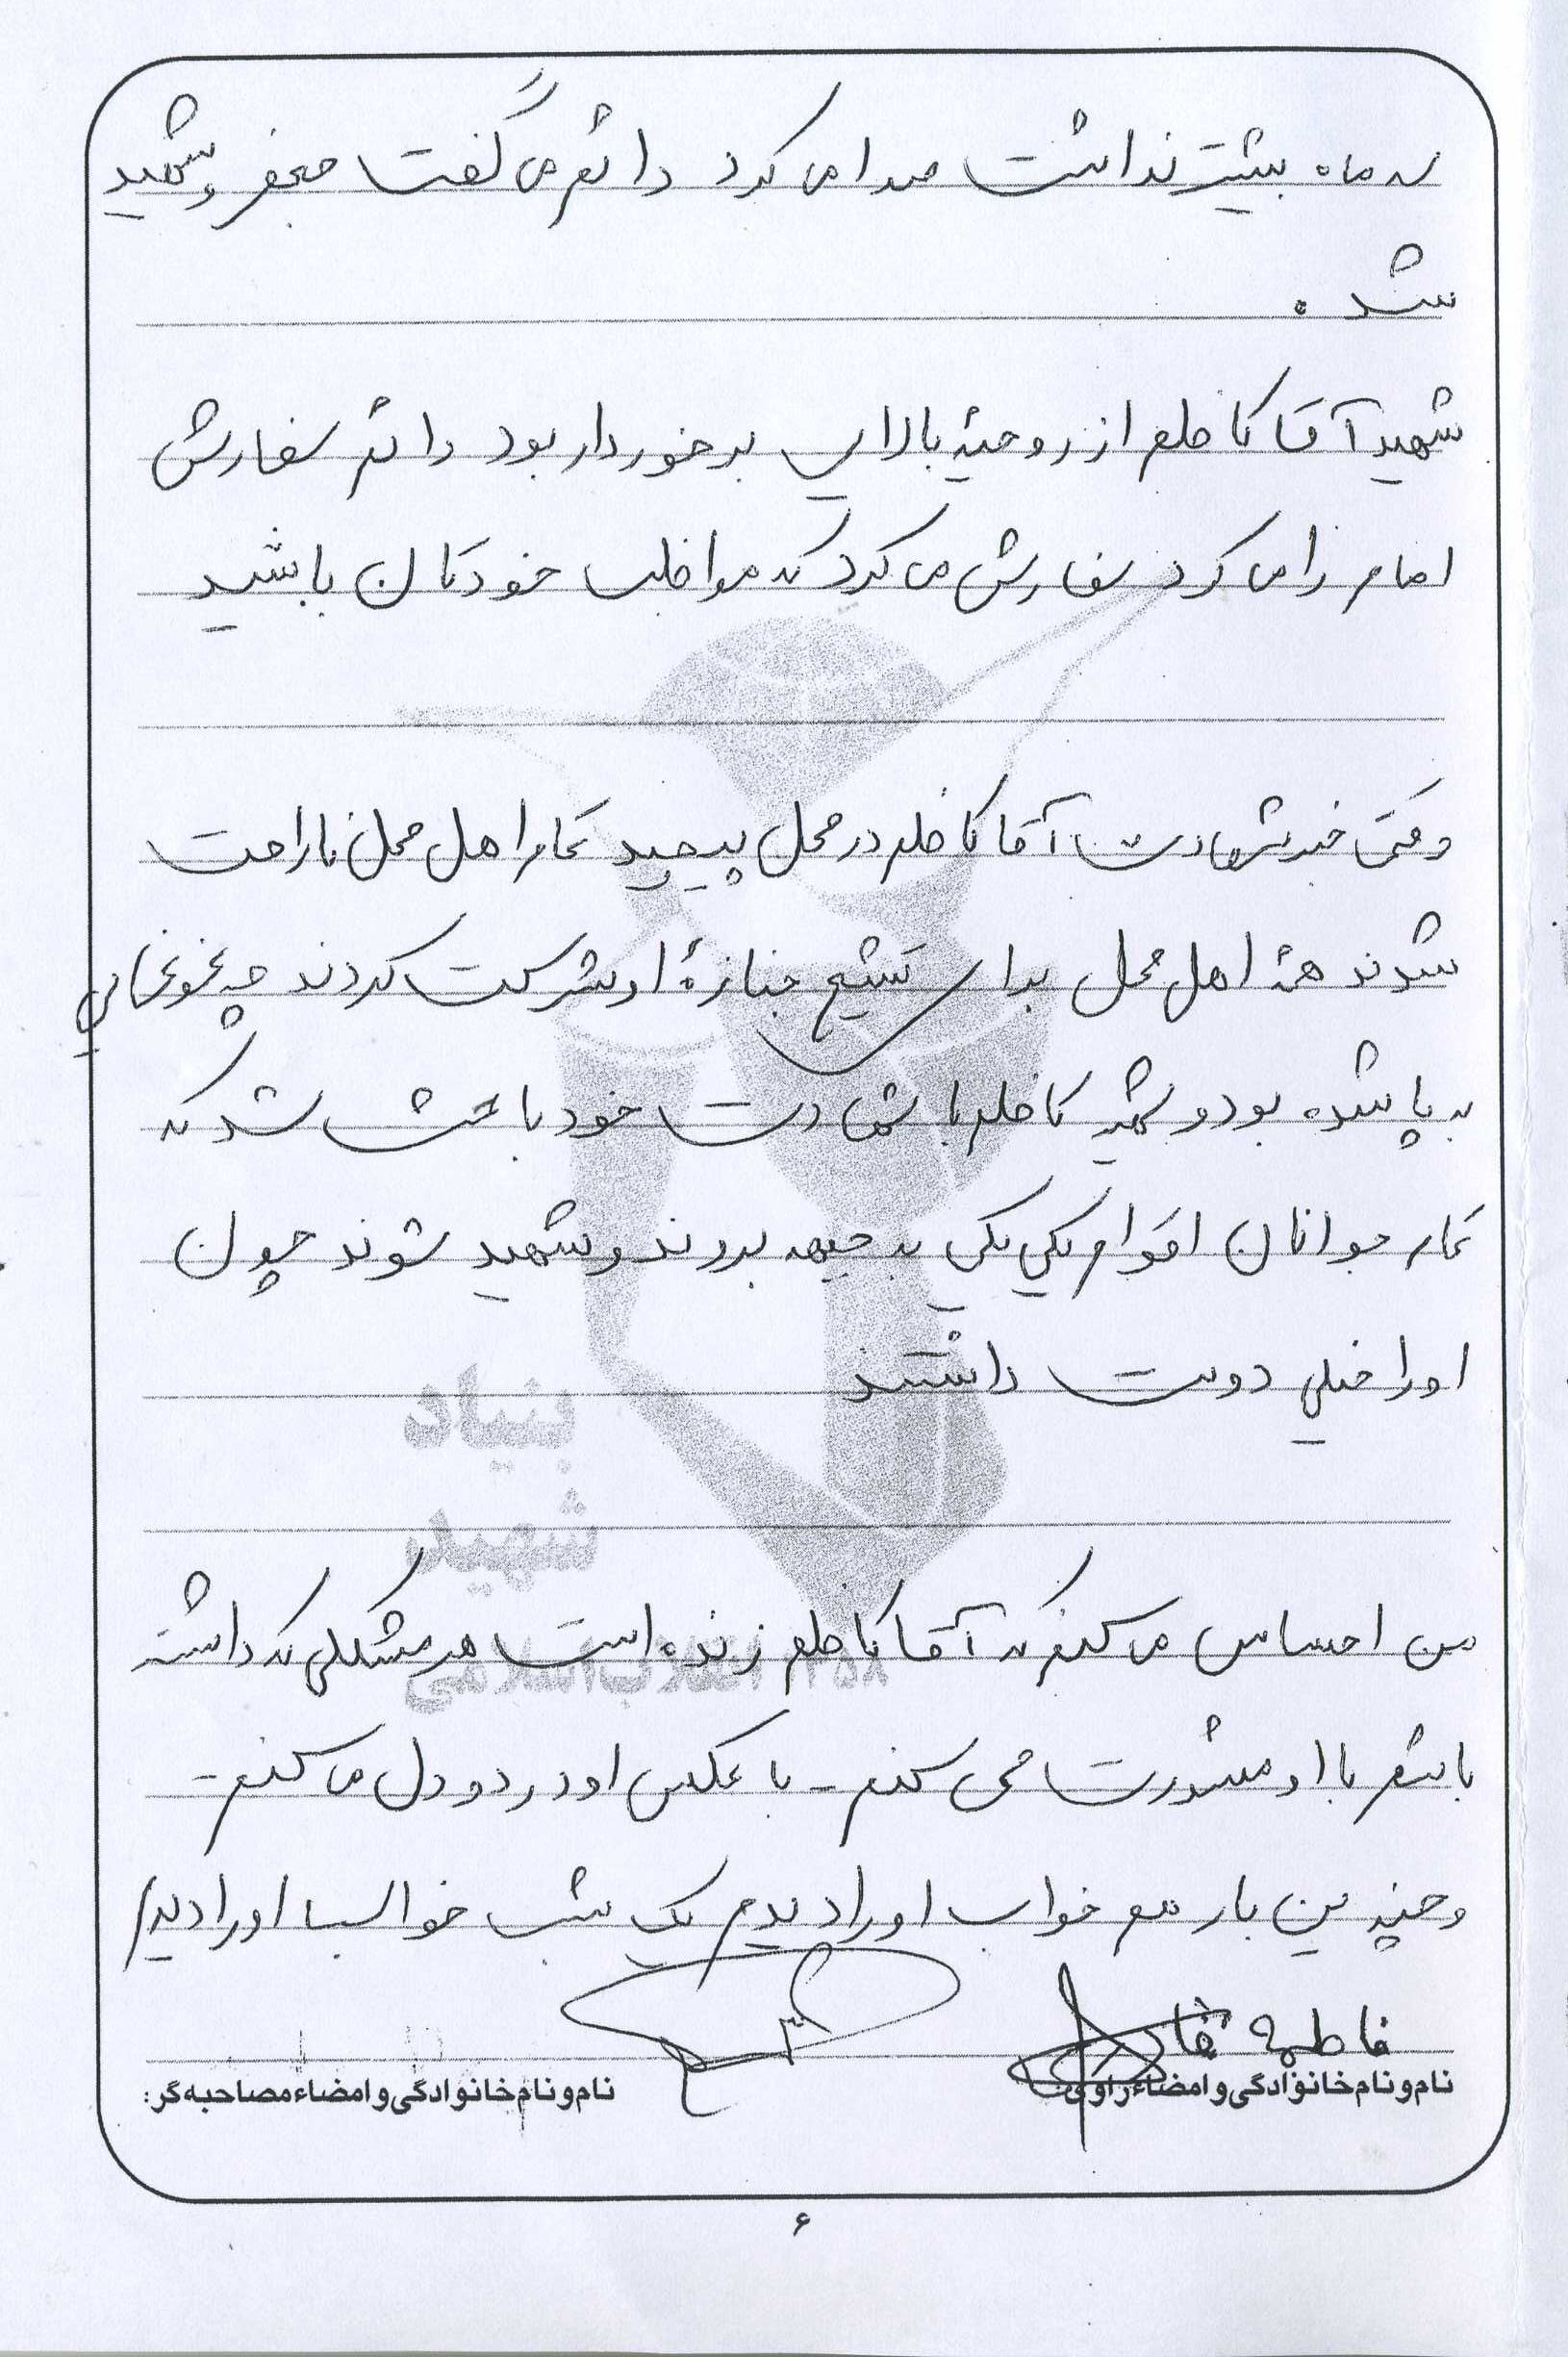 سه ماه بیشتر نداشت صدا می کرد دائم می گفت جعفر و شهید
شد .
شهید آقا کاظم از روحیۀ بالایی برخوردار بود دائم سفارش
امام را می کرد سفارش می کرد که مواظب خودتان باشید
وقتی خبر شهادت آقا کاظم در محل پیچید تمام اهل محل ناراحت
شدند همۀ اهل محل برای تشیع جنازۀ او شرکت کردند چه غوغایی
به پا شده بود و شهید کاظم با شهادت خود باعث شد که
تمام جوانان اقوام یکی یکی به جبهه بروند و شهید شوند چون
او را خیلی دوست داشتند
بنیاد
شهید
انقلاب اسلامی ۱۳۵۸
من احساس می کنم که آقا کاظم زنده است هر مشکلی که داشته
باشم با او مشورت می کنم - با عکس او درد و دل می کنم -
و چندین بار هم خواب او را دیدم یک شب خواب او را دیدم
فاطمه
نام و نام خانوادگی و امضاء راوی:
نام و نام خانوادگی و امضاء مصاحبه گر:
۶